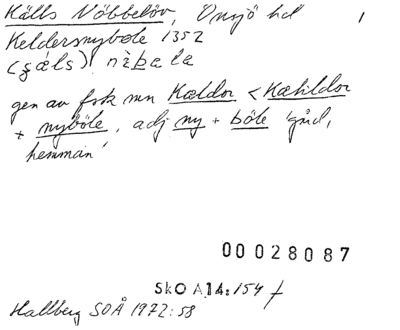 Källs Nöbbelöv, Onsjö hd 1
Keldersnybole 1352
nìbala
gen av fsk mn Kældor < Kætildor
+ nyböle, adj ny + böle 'gård,
hemman'
00028087
SkO A14:154
Hallberg SOÅ 1972:58